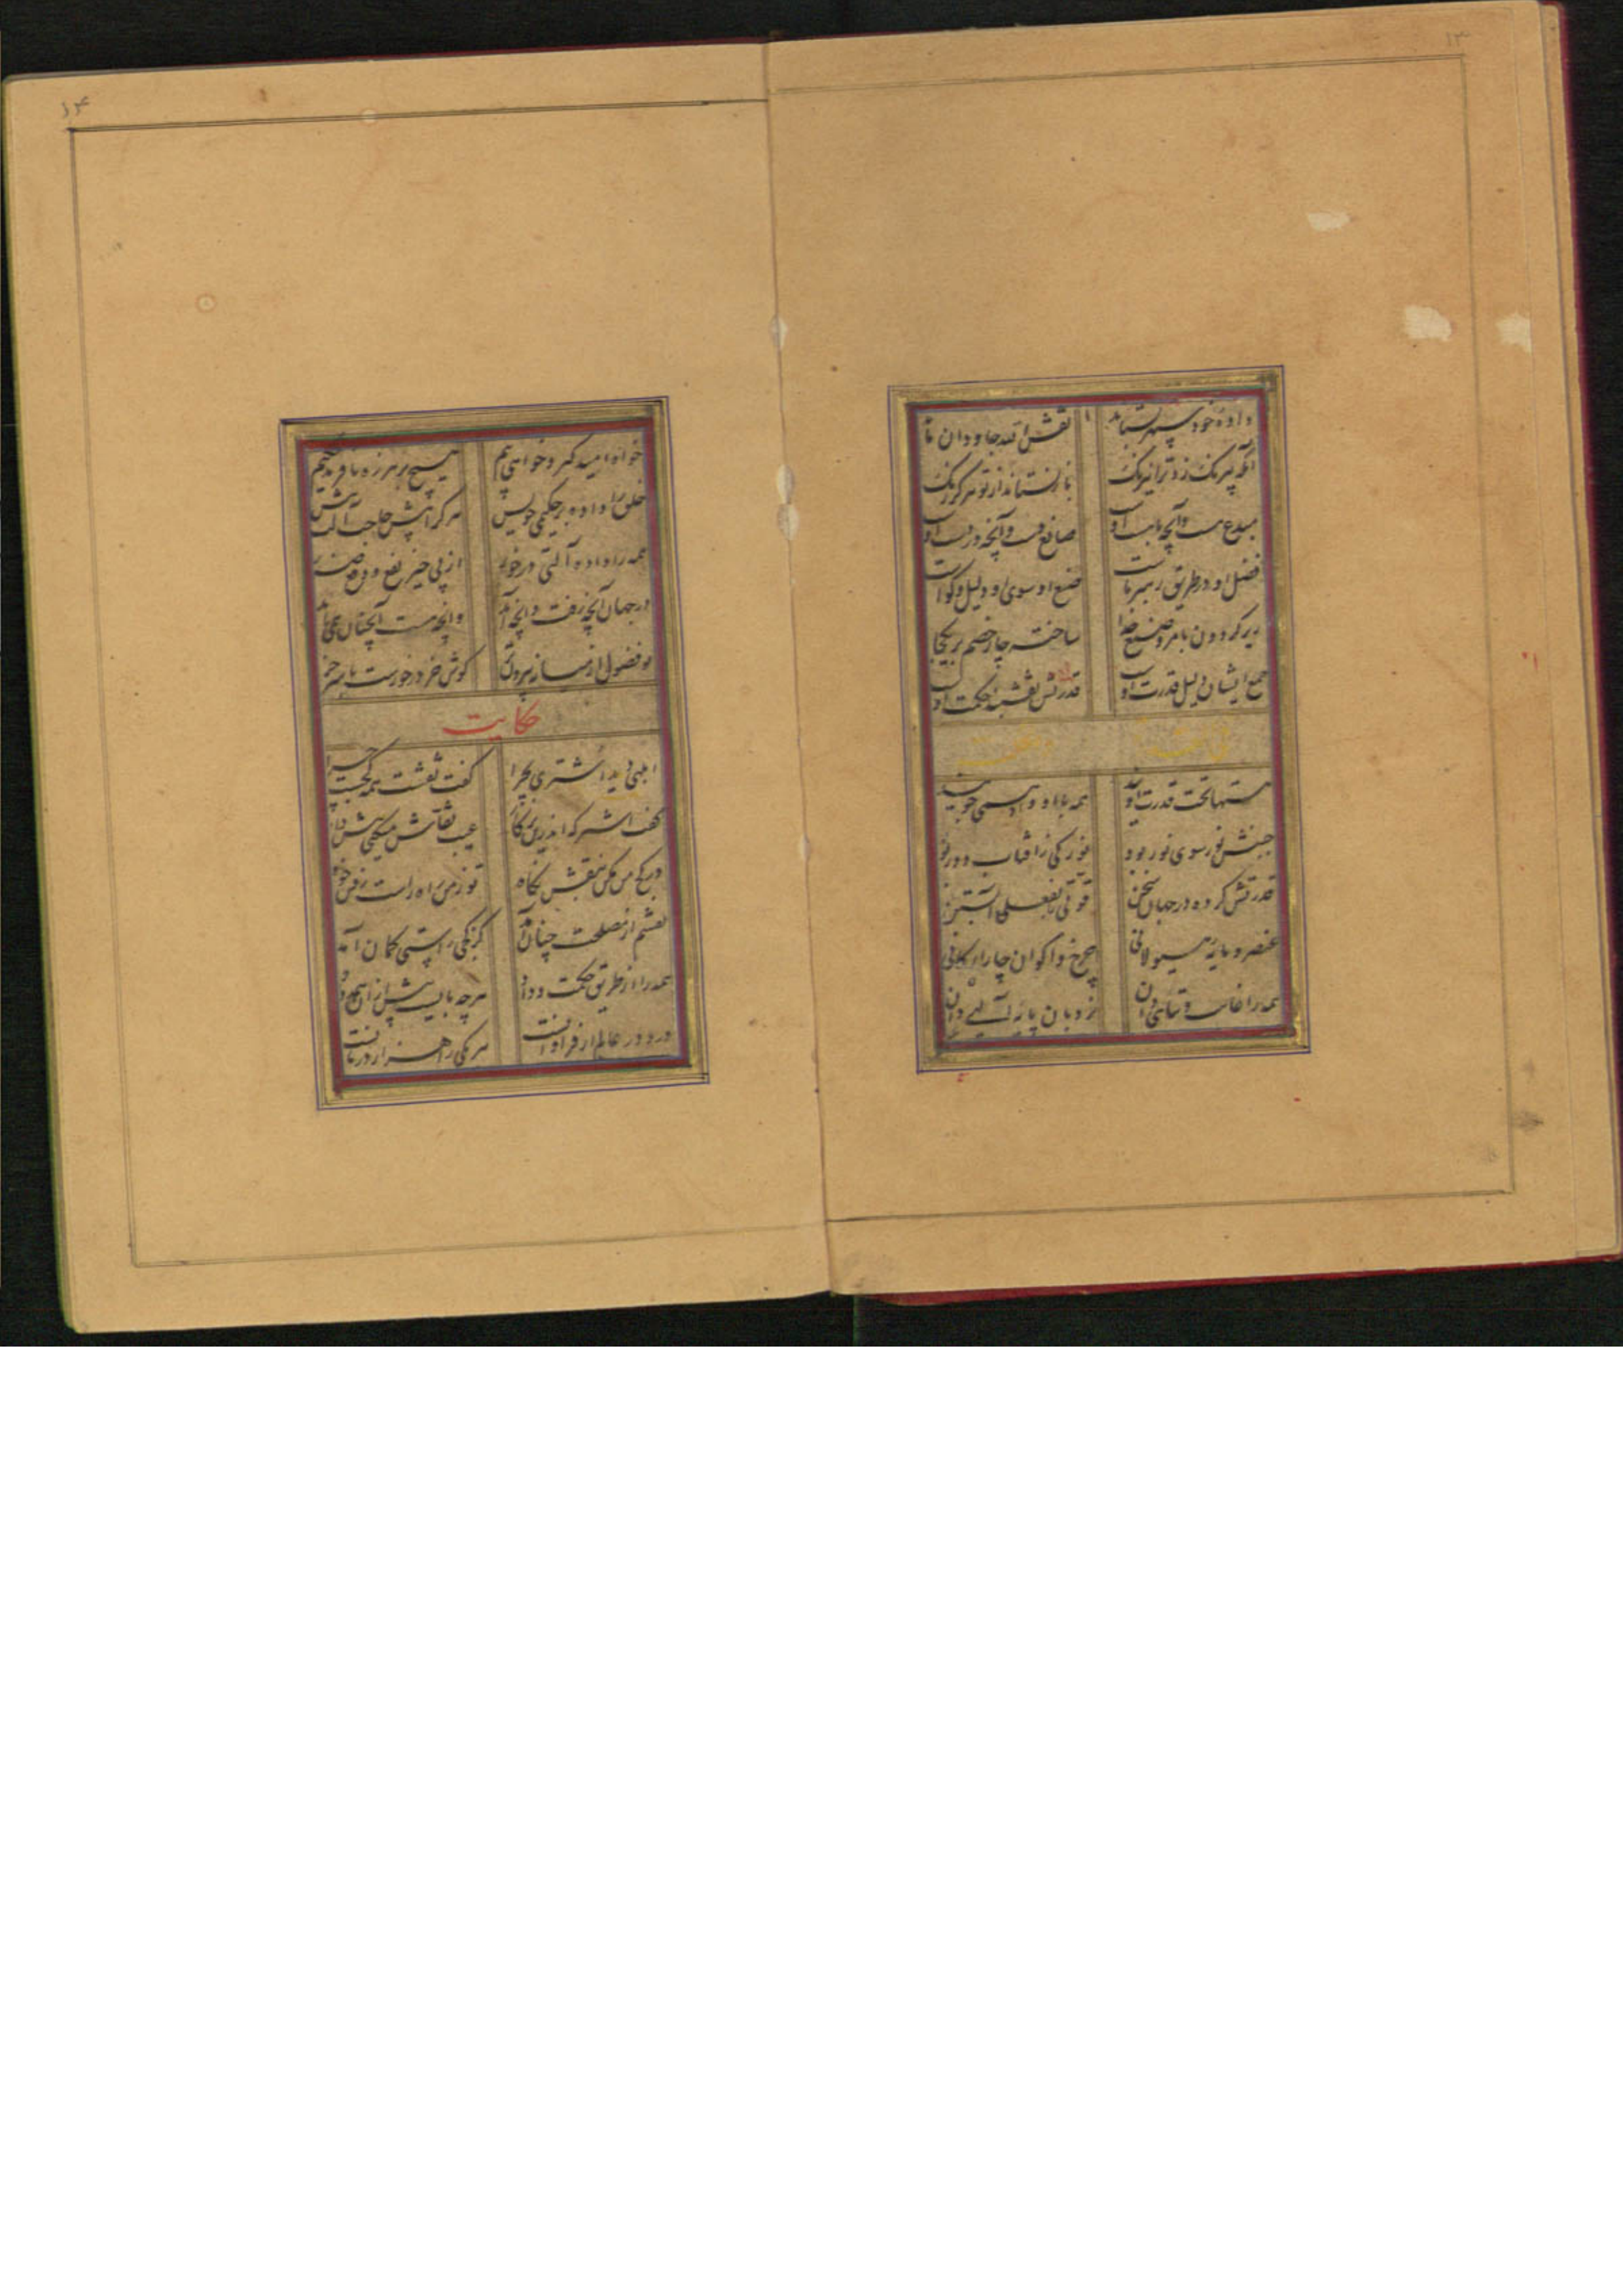 ۱۳
داده خود سپهر بستاند نقش الله جاودان ماند
آنکه بیرنگ زد ترا نیرنگ باز نستاند از تو هرگز رنگ
مبدع هست و آنچه نابست او صانع دست و آنچه در دست او
فضل او در طریق رهبر ماست صنع او سوی او دلیل و گواست
زیر گردون بامر و صنع خدا ساخته چار خصم بر یکجا
جمع ایشان دلیل قدرت اوست قدرتش نقشبند حکمت اوست
هستها تحت قدرت اویند همه با او و او همی جویند
جنبش نور سوی نور بود نور کی زافتاب دور بود
قدرتش کرده در جهان سخن قوتی را بفعلی آبستن
عنصر و مایه هیولانی چرخ و اکوان چار ارکانی
همه را غایت و تناهی دان نردبان پایه آلهی دان
۱۴
خواه امید گیر و خواهی بیم هیچ بر هرزه نافرید حکیم
خلق را داده بر حکیمی خویش هر کرا بیش حاجت آلت بیش
همه را داده آلتی درخور از پی خیر نفع و دفع ضرر
در جهان آنچه رفت و آنچه آید وانچه هست آنچنان همی باید
تو فضول از میانه بیرون بر گوش خر درخورست با سر خر
حکایت
ابلهی دید اشتری بچرا گفت نقشت همه کجست چرا
گفت اشتر که اندرین پیکار عیب نقاش میکنی هش دار
در کج من مکن بنقش نگاه تو زمن راه راست رفتن خواه
نقشم از مصلحت چنان آمد کز کجی راستی کمان آمد
همه را از طریق حکمت و داد هرچه بایست بیش از آن همه داد
درد در عالم ار فراوانست هر یکی را هزار درمانست